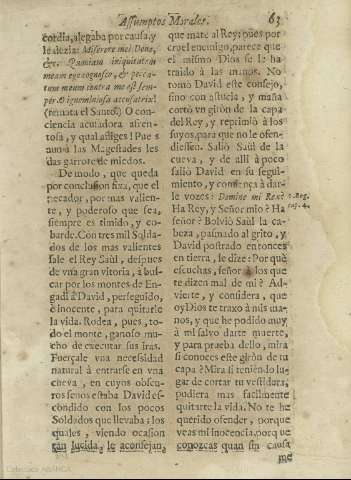 Assumptos Morales. 63
cordia, alegaba por causa, y
le dezia: Miserere mei Deus,
&c. Quoniam iniquitatem
meam ego cognosco, & pecca-
tum meum contra me est sem-
per. & ignominiosa accusatrix!
(remata el Santo) O con-
ciencia acusadora afren-
tosa, y qual afliges! Pues
aun à las Magestades les
das garrote de miedos.
De modo, que queda
por conclusion fixa, que el
pecador, por mas valien-
te, y poderoso que sea,
siempre es timido, y co-
barde. Con tres mil Solda-
dos de los mas valientes
sale el Rey Saùl, despues
de vna gran vitoria, à bus-
car por los montes de En-
gadi à David, perseguido,
è inocente, para quitarle
la vida. Rodea, pues, to-
do el monte, ganoso mu-
cho de executar sus iras.
Fuerçale vna necessidad
natural à entrarse en vna
cueva, en cuyos obscu-
ros senos estaba David es-
condido con los pocos
Soldados que llevaba: los
quales, viendo ocasion
tan lucida, le aconsejan,
que mate al Rey: pues por
cruel enemigo, parece que
el mismo Dios se le ha
traido à las manos. No
tomò David este consejo,
sino con astucia, y maña
cortò vn giron de la capa
del Rey, y reprimiò à los
suyos, para que no le ofen-
diessen. Saliò Saùl de la
cueva, y de allì à poco
saliò David en su segui-
miento, y comença à dar-
le vozes: Domine mi Rex?
Ha Rey, y Señor mio? Ha
señor? Bolviò Saùl la ca-
beza, pasmado al grito, y
David postrado entonces
en tierra, le dize: Por què
escuchas, señor à los que
te dizen mal de mi? Ad-
vierte, y considera, que
oy Dios te traxo à mis ma-
nos, y que he podido muy
à mi salvo darte muerte,
y para prueba dello, mira
si conoces este giron de tu
capa? Mira si teniendo lu-
gar de cortar tu vestidura,
pudiera mas facilmente
quitarte la vida. No te he
querido ofender, porque
veas mi inocencia, porque
conozcas quan sin causa
me
1. Reg.